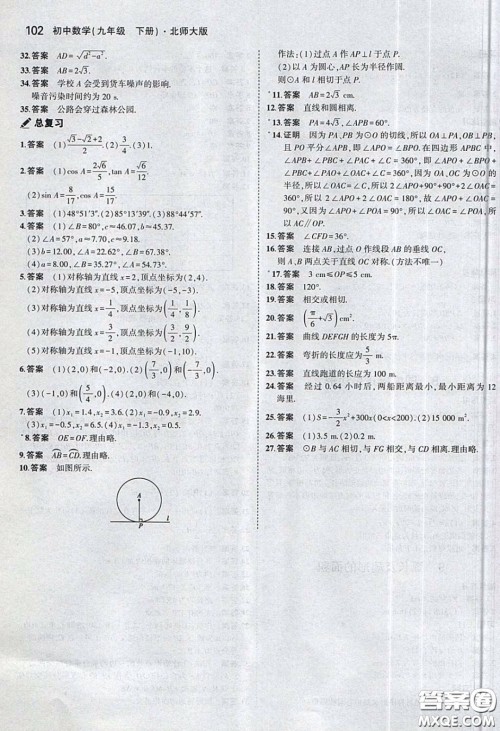 102 初中数学(九年级 下册)·北师大版
32.答案 AD=√(d²-a²).
33.答案 AB=2√3 cm.
34.答案 学校A会受到货车噪声的影响.
噪音污染时间约为20 s.
35.答案 公路会穿过森林公园.
总复习
1.答案 (1)(√3-√2+2)/2.(2)3/4.(3)1.
2.答案 (1)cos A=2√6/5,tan A=√6/12.
(2)sin A=8/17,cos A=15/17.
3.答案 (1)48°51'3″.(2)39°5'38″.(3)88°44'57″.
4.答案 (1)∠B=60°,c≈46.19,b≈40.
(2)∠A=54°,c≈56.07,b≈45.37.
(3)b=12.00,∠A≈22.62°,∠B≈67.38°.
(4)a≈8.00,∠B≈35.27°,∠A≈54.73°.
5.答案 (1)对称轴为直线x=2,顶点坐标为(2,2).
(2)对称轴为直线x=-5,顶点坐标为(-5,-5).
(3)对称轴为直线x=1/4,顶点坐标为(1/4,1/8).
(4)对称轴为直线x=3/2,顶点坐标为(3/2,9/2).
(5)对称轴为直线x=-1,顶点坐标为(-1,10).
6.答案 (1)(2,0)和(-2,0).(2)(7/3,0)和(-7/3,0).
(3)(-1,0)和(5/4,0).(4)(2,0)和(-1,0).
7.答案 (1)x₁=1.4,x₂=3.6.(2)x₁=-2,x₂=0.
(3)x₁=-5.5,x₂=0.5.(4)x₁=-1,x₂=6.
*8.答案 OE=OF.理由略.
9.答案 AB=CD.理由略.
10.答案 如图所示.
A
P
l
作法:(1)过点A作AP⊥l于点P.
(2)以A为圆心,AP长为半径作圆.
则⊙A与l相切于点P.
*11.答案 AB=2√3 cm.
12.答案 直线和圆相离.
*13.答案 PA=4√3,∠APB=60°.
*14.证明 因为PA,PB为⊙O的切线,所以OA⊥PA,OB⊥PB,
且PO平分∠APB,即∠APO=∠BPO.在四边形APBC中,
∠APB+∠PBC+∠C+∠PAC=360°,即∠APO+∠BPO+
∠PBO+∠OBC+∠C+∠PAO+∠OAC=360°.因为OA为⊙O的
半径,所以∠OAC=∠C.所以2∠APO+90°+90°+2∠OAC=
360°,即2∠APO+2∠OAC=180°,故∠APO+∠OAC=90°.
又因为∠APO+∠POA=90°,所以∠OAC=∠POA.所
以AC∥OP.
15.答案 ∠CFD=36°.
16.答案 连接AB,过点O作线段AB的垂线OC,
则点O离直线OC对称.(方法不唯一)
*17.答案 3 cm≤OP≤5 cm.
18.答案 120°.
19.答案 相交或相切.
20.答案 (π/6+√3) cm².
21.答案 曲线DEFGH的长度为5π.
22.答案 弯折的长度为8π/3.
23.答案 直线跑道的长度为100 m.
24.答案 经过2 0.64小时后,两船距离最小,最小距离为12
海里.
25.答案 (1)S=-3/2x²+300x(0<x<200).(2)15 000 m².
26.答案 (1)3.5 m.(2)0.2 m.
27.答案 ⊙B与AC相交,与FG相交,与CD相离.理由略.
答案圈
MXQE.COM